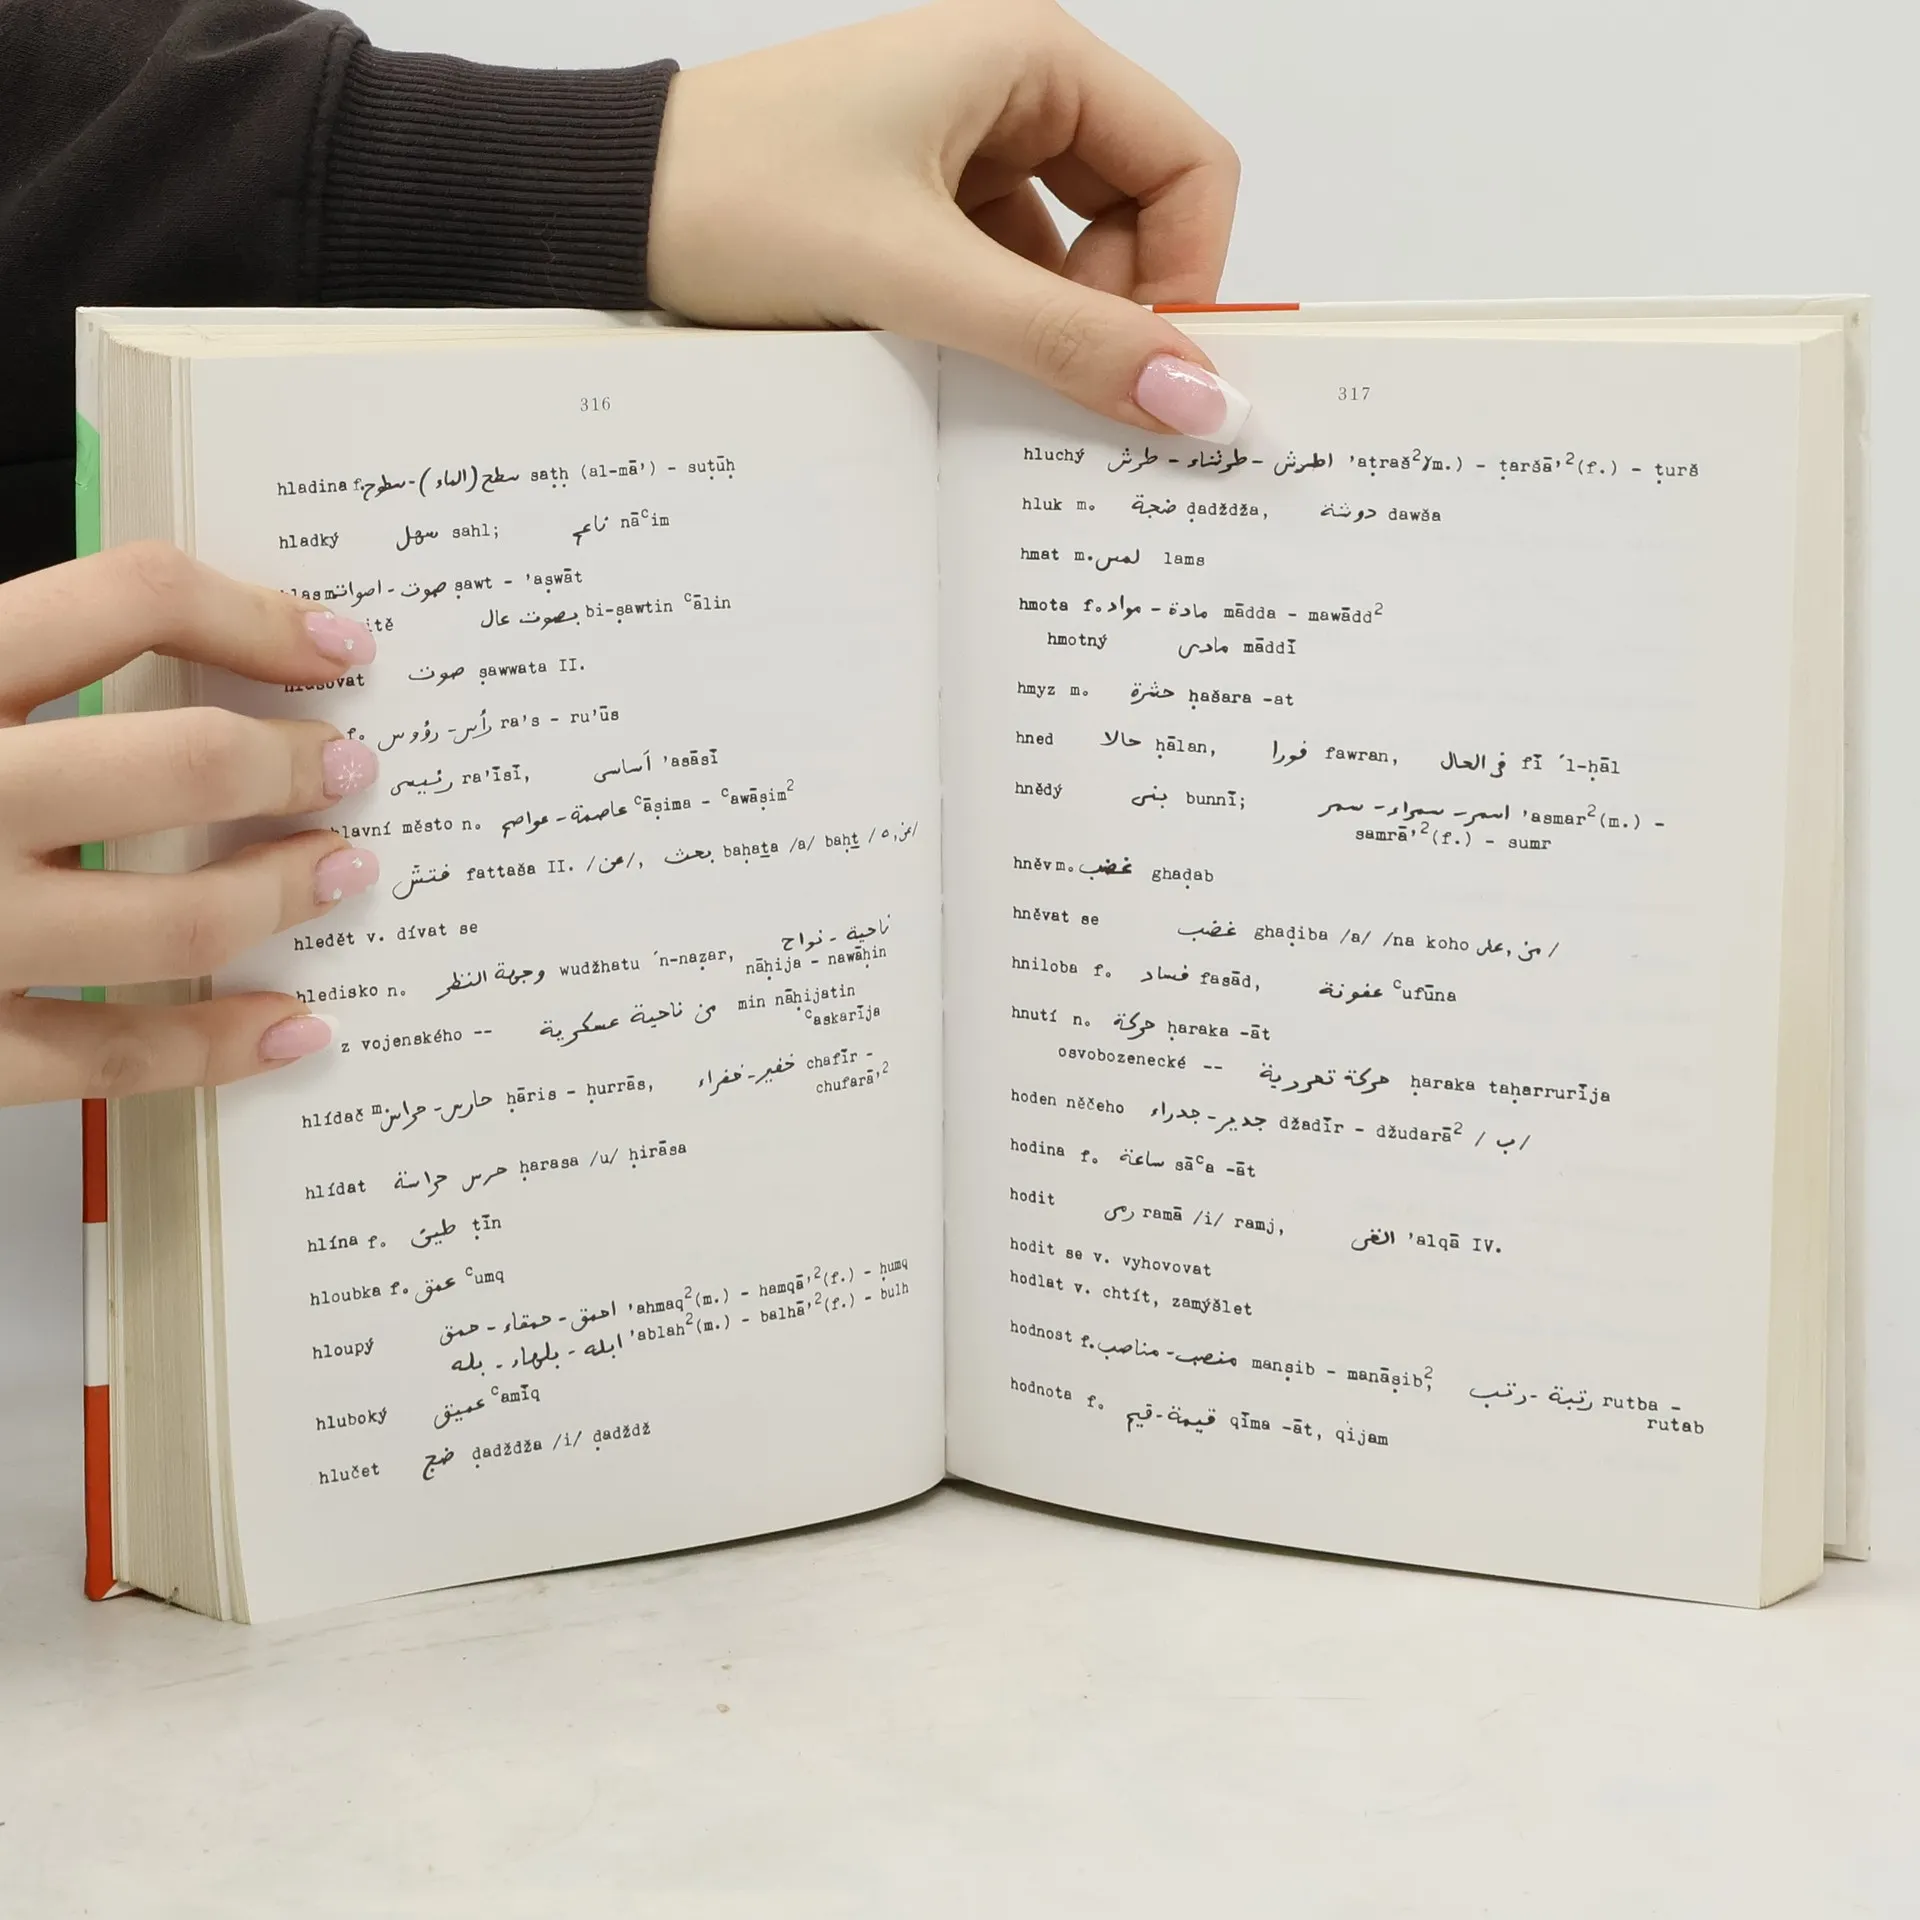 316
hladina f. سطح (الماء) - سطوح saṭḥ (al-mā') - suṭūḥ
hladký سهل sahl; ناعم nāᶜim
صوت - اصوات ṣawt - 'aṣwāt
بصوت عال bi-ṣawtin ᶜālin
hlasovat صوت ṣawwata II.
f. رأس - رؤوس ra's - ru'ūs
رئيسى ra'īsī, أساسى 'asāsī
hlavní město n. عاصمة - عواصم ᶜāṣima - ᶜawāṣim²
فتش fattaša II. /عن/, بحث baḥaṯa /a/ baḥṯ /عن, ه/
hledět v. dívat se
hledisko n. وجهة النظر wudžhatu ´n-naẓar, ناحية - نواح
nāḥija - nawāḥin
z vojenského -- من ناحية عسكرية min nāḥijatin
ᶜaskarīja
hlídač m. حارس - حراس ḥāris - ḥurrās, خفير - خفراء chafīr -
chufarā'²
hlídat حرس حراسة ḥarasa /u/ ḥirāsa
hlína f. طين ṭīn
hloubka f. عمق ᶜumq
hloupý احمق - حمقاء - حمق 'ahmaq²(m.) - hamqā'²(f.) - ḥumq
ابله - بلهاء - بله 'ablah²(m.) - balhā'²(f.) - bulh
hluboký عميق ᶜamīq
hlučet ضج ḍadždža /i/ ḍadždž
317
hluchý اطرش - طرشاء - طرش 'aṭraš²(m.) - ṭaršā'²(f.) - ṭurš
hluk m. ضجة ḍadždža, دوشة dawša
hmat m. لمس lams
hmota f. مادة - مواد mādda - mawādd²
hmotný مادى māddī
hmyz m. حشرة ḥašara -at
hned حالا ḥālan, فورا fawran, فى الحال fī ´l-ḥāl
hnědý بنى bunnī; اسمر - سمراء - سمر 'asmar²(m.) -
samrā'²(f.) - sumr
hněv m. غضب ghaḍab
hněvat se غضب ghaḍiba /a/ /na koho من, على/
hniloba f. فساد fasād, عفونة ᶜufūna
hnutí n. حركة ḥaraka -āt
osvobozenecké -- حركة تحررية ḥaraka taḥarrurīja
hoden něčeho جدير - جدراء džadīr - džudarā² /ب/
hodina f. ساعة sāᶜa -āt
hodit رمى ramā /i/ ramj, القى 'alqā IV.
hodit se v. vyhovovat
hodlat v. chtít, zamýšlet
hodnost f. منصب - مناصب manṣib - manāṣib², رتبة - رتب rutba -
rutab
hodnota f. قيمة - قيم qīma -āt, qijam